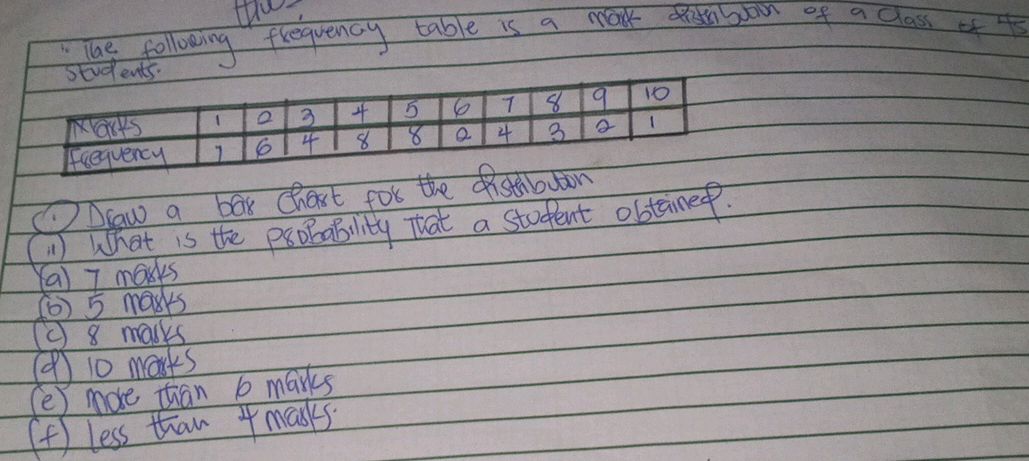 The following frequency table is a mark distribution of a class of 45
students.
Marks 1 2 3 4 5 6 7 8 9 10
frequency 7 6 4 8 8 2 4 3 2 1
(i) Draw a bar chart for the distribution
(ii) What is the probability that a student obtained.
(a) 7 marks
(b) 5 marks
(c) 8 marks
(d) 10 marks
(e) more than 6 marks
(f) less than 4 marks.